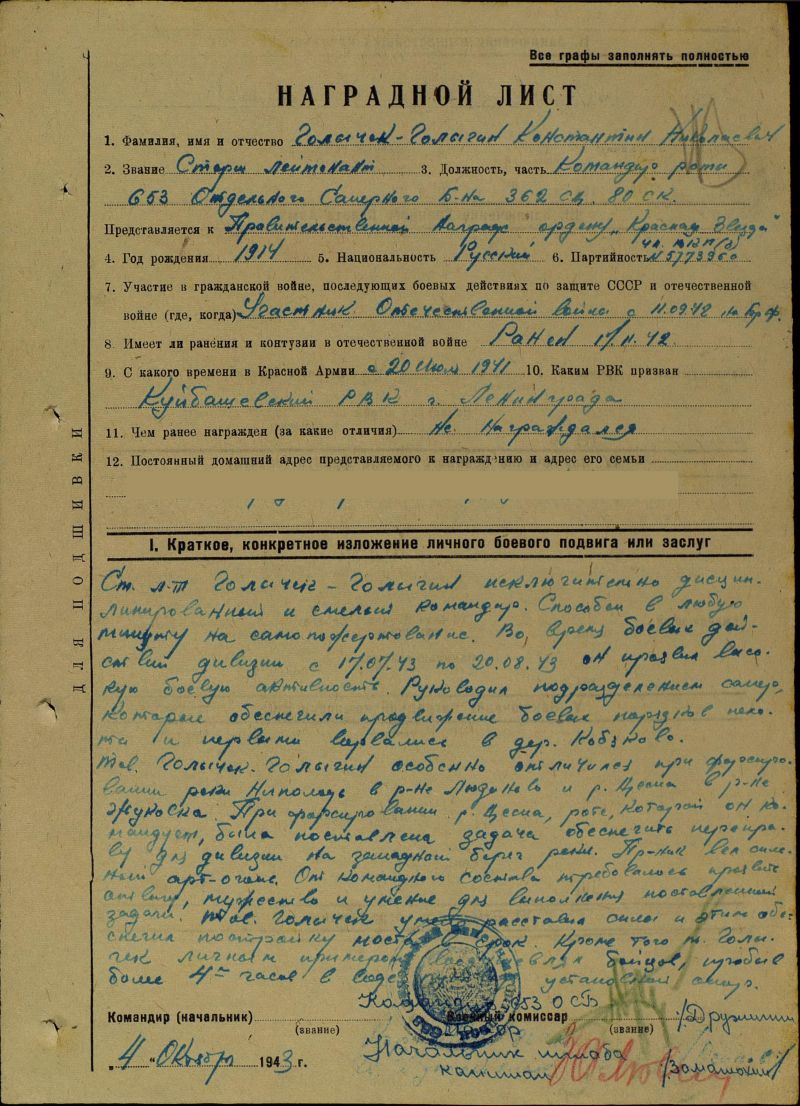 Все графы заполнять полностью
НАГРАДНОЙ ЛИСТ
1. Фамилия, имя и отчество Голычек-Голыгин Константин Николаевич
2. Звание Старш лейтенант 3. Должность, часть Командир роты
653 Отдельного Саперного Б-на 362 СД. 80 СК.
Представляется к Правительственной Награде ордену „Красная Звезда"
4. Год рождения 1914 5. Национальность Русский 6. Партийность
7. Участие в гражданской войне, последующих боевых действиях по защите СССР и отечественной
войне (где, когда) Участник Отечественной войны с 11.09.42 на
8. Имеет ли ранения и контузии в отечественной войне Ранен
9. С какого времени в Красной Армии с 20 Июля 1941 10. Каким РВК призван
Куйбышевский РВК г. Ленинграда
11. Чем ранее награжден (за какие отличия) Не Награждался
12. Постоянный домашний адрес представляемого к награждению и адрес его семьи
ДЛЯ ПОДШИВКИ
I. Краткое, конкретное изложение личного боевого подвига или заслуг
Ст. л-т Голычек-Голыгин исключительно дисцип-
линированный и смелый командир. Способен в любую
минуту на самопожертвование. Во время боевых дей-
ствий дивизии с 17.07.43 по 20.08.43 он проявил высо-
кую боевую активность. Руководил подразделением сапер,
которые обеспечили продвижение боевых порядков пехо-
ты и первыми ворвались в дер.
Тов. Голычек-Голыгин особенно отличился при форсиро-
вании реки Неполодь в р-не Людиново и р. Десна в р-не
Жуковка. При форсировании р. Десна, роте, которой он ко-
мандует, была поставлена задача обеспечить перепра-
ву для дивизии на западный берег реки. Пр-ник вел силь-
ный арт-огонь. От командного состава требовалось проявить
отвагу, мужество и умение для выполнения поставленной
задачи. Тов. Голычек умело расставил силы и этим обе-
спечил постройку моста в срок. Кроме того т. Голы-
чек личным примером бойцов, пробыв
более 4-х часов в воде установкой опор.
Командир 653 ОСБ
Командир (начальник) Военный комиссар /Дружинин
(звание) (звание)
„4" Октябрь 1943 г. Начальник штаба
капитан